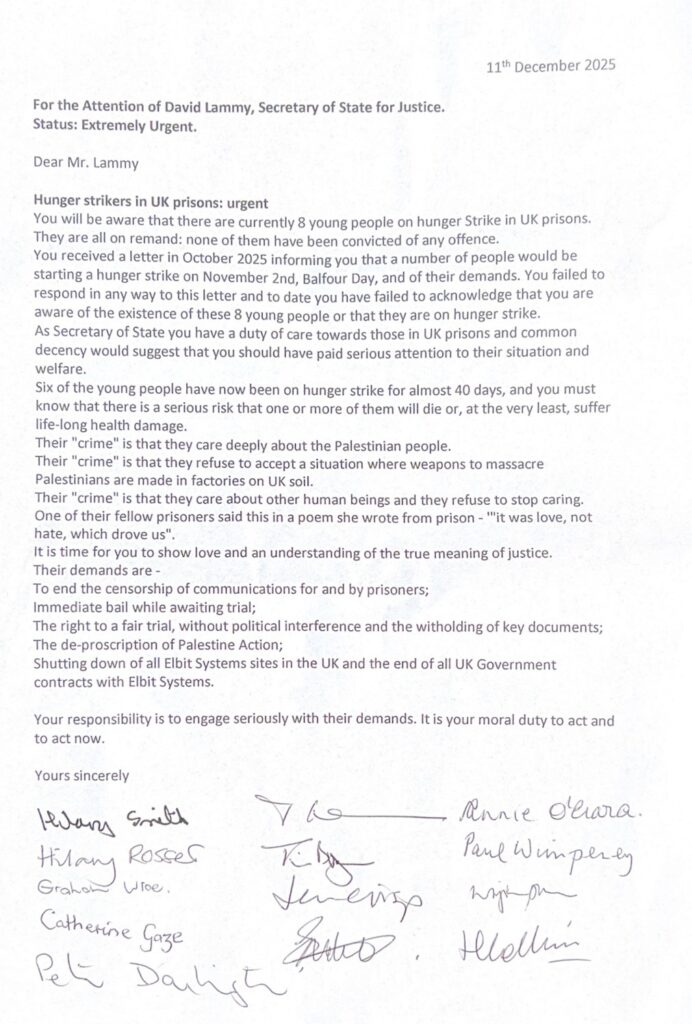 11th December 2025
For the Attention of David Lammy, Secretary of State for Justice.
Status: Extremely Urgent.
Dear Mr. Lammy
Hunger strikers in UK prisons: urgent
You will be aware that there are currently 8 young people on hunger Strike in UK prisons.
They are all on remand: none of them have been convicted of any offence.
You received a letter in October 2025 informing you that a number of people would be
starting a hunger strike on November 2nd, Balfour Day, and of their demands. You failed to
respond in any way to this letter and to date you have failed to acknowledge that you are
aware of the existence of these 8 young people or that they are on hunger strike.
As Secretary of State you have a duty of care towards those in UK prisons and common
decency would suggest that you should have paid serious attention to their situation and
welfare.
Six of the young people have now been on hunger strike for almost 40 days, and you must
know that there is a serious risk that one or more of them will die or, at the very least, suffer
life-long health damage.
Their "crime" is that they care deeply about the Palestinian people.
Their "crime" is that they refuse to accept a situation where weapons to massacre
Palestinians are made in factories on UK soil.
Their "crime" is that they care about other human beings and they refuse to stop caring.
One of their fellow prisoners said this in a poem she wrote from prison - '"it was love, not
hate, which drove us".
It is time for you to show love and an understanding of the true meaning of justice.
Their demands are -
To end the censorship of communications for and by prisoners;
Immediate bail while awaiting trial;
The right to a fair trial, without political interference and the witholding of key documents;
The de-proscription of Palestine Action;
Shutting down of all Elbit Systems sites in the UK and the end of all UK Government
contracts with Elbit Systems.
Your responsibility is to engage seriously with their demands. It is your moral duty to act and
to act now.
Yours sincerely
Hilary Smith
Annie O'Gara.
Hilary Rosser
Paul Wimpeney
Graham Wroe.
Catherine Gaze